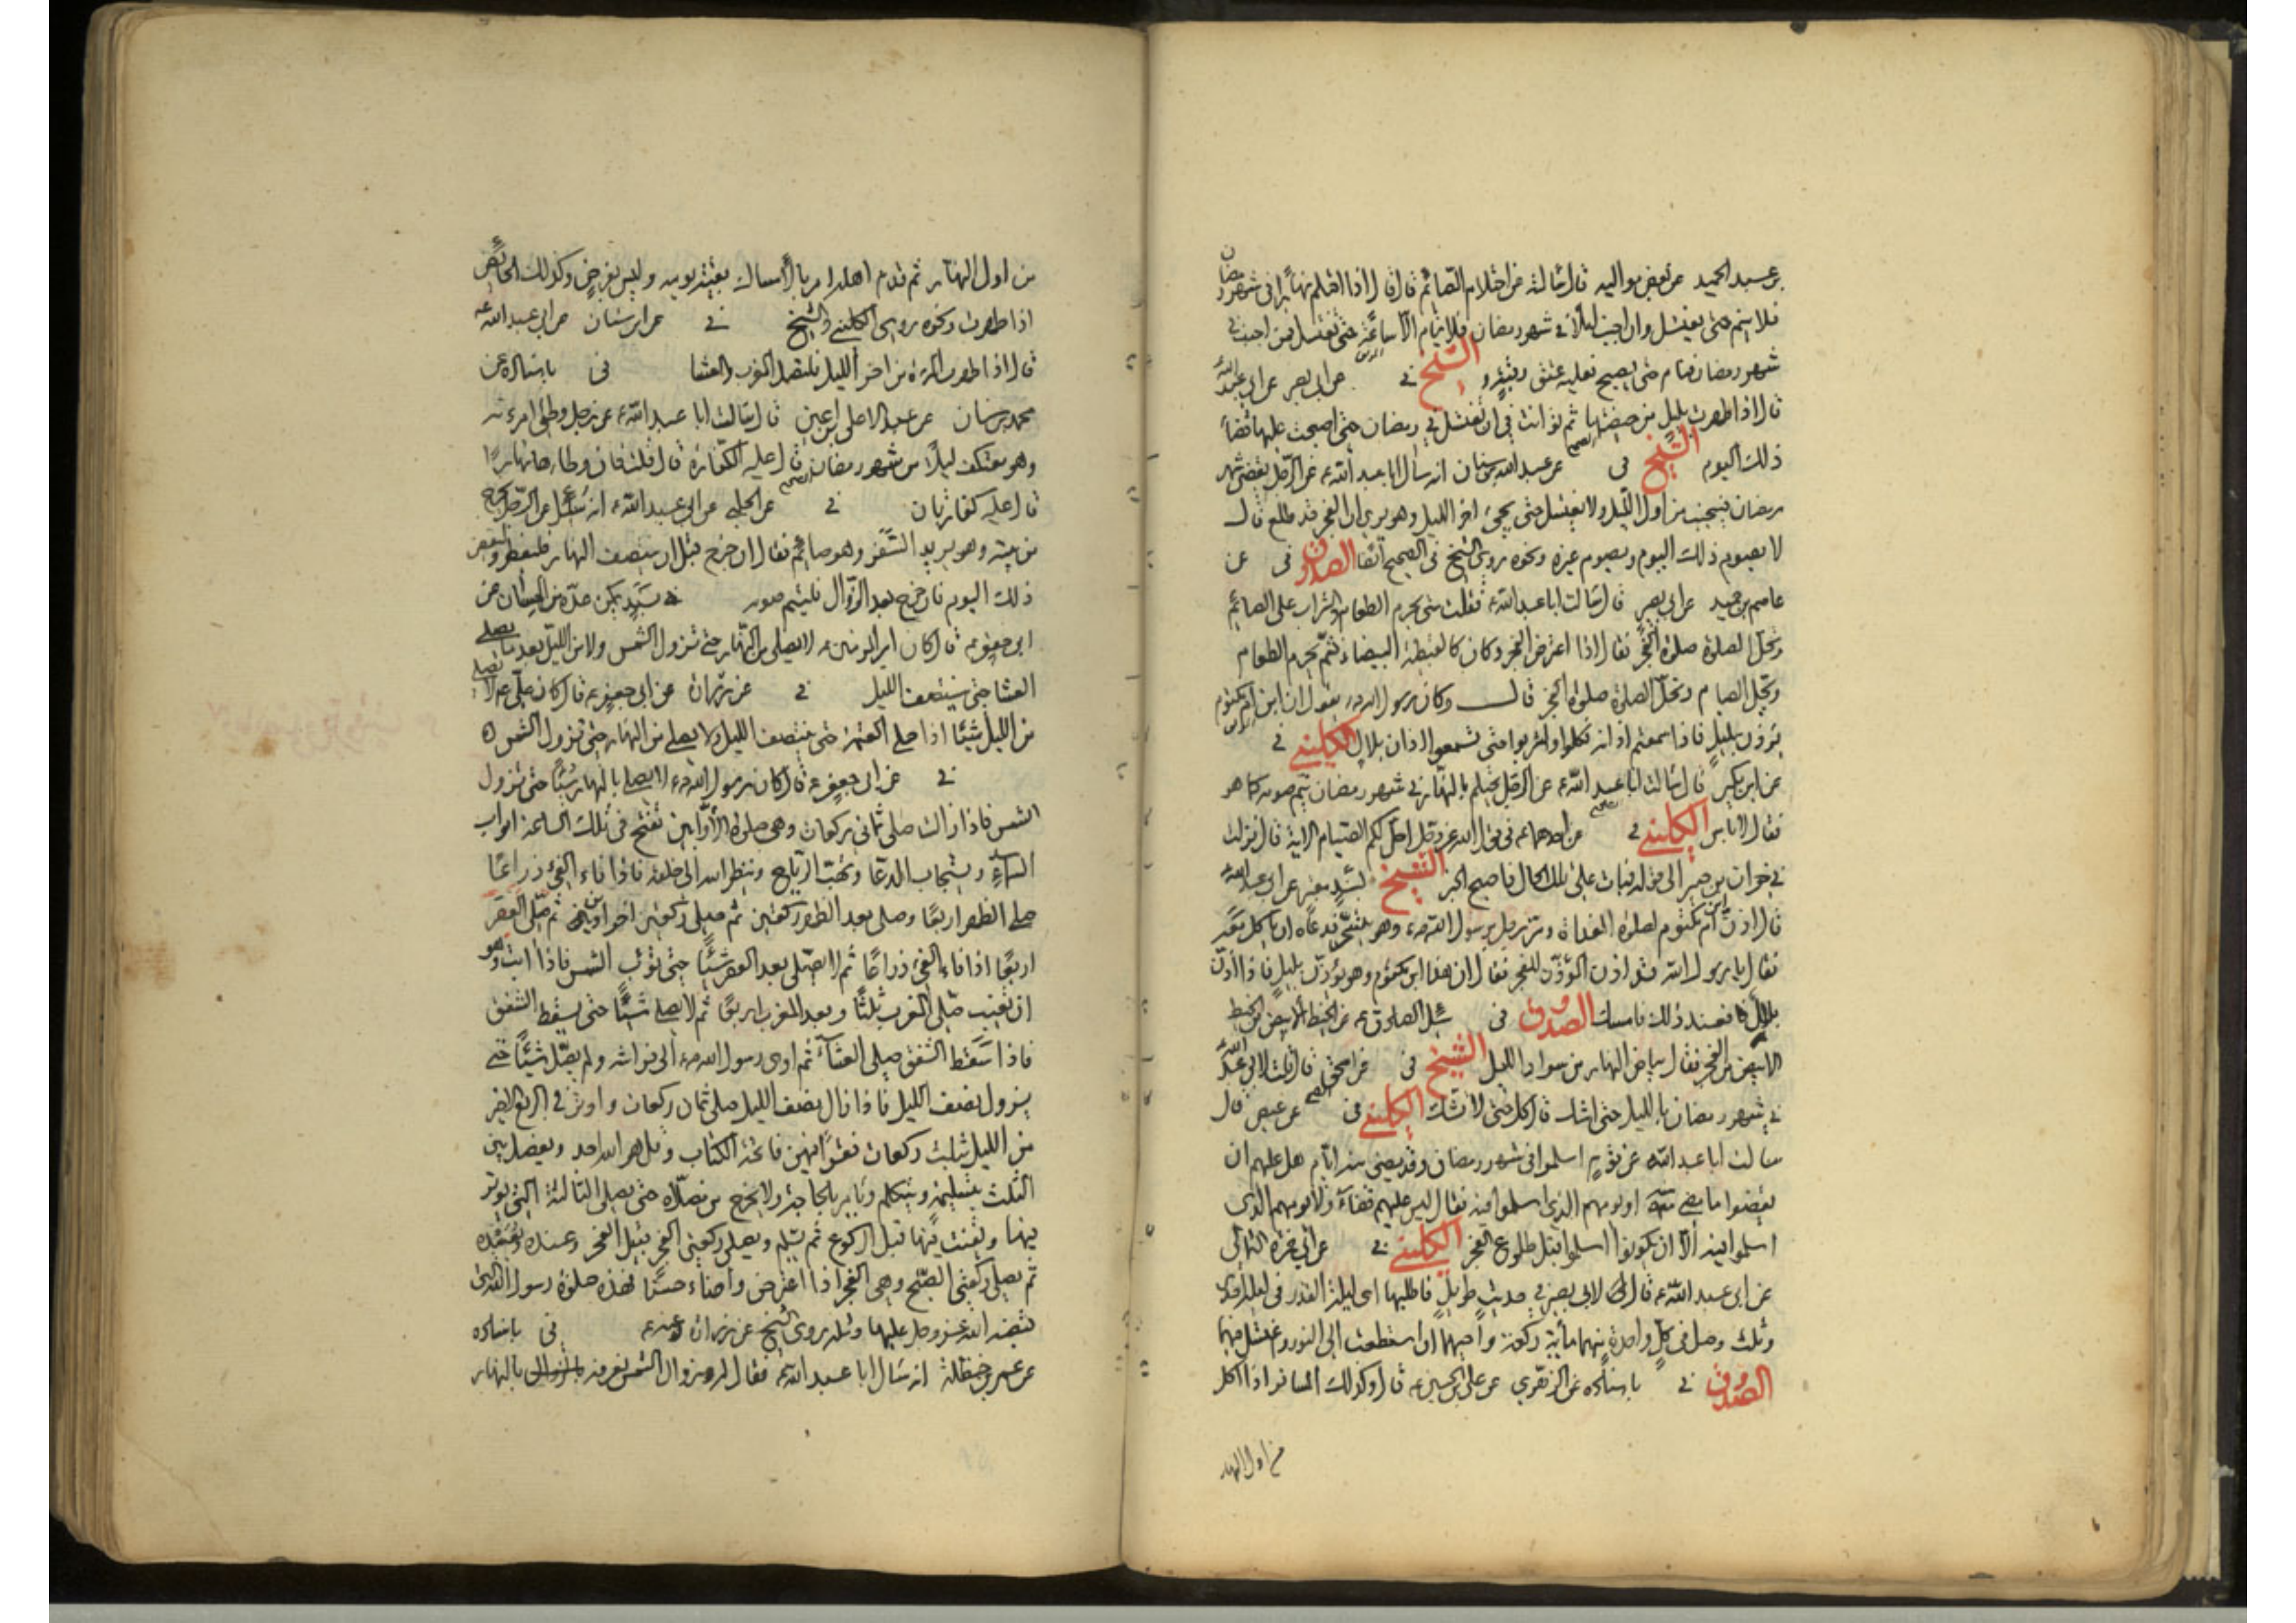 بن عبد الحميد عن بعض مواليه قال سالته عن احتلام الصائم قال فقال اذا احتلم نهارًا في شهر رمضان
فلا ينم حتى يغتسل وان اجنب ليلاً في شهر رمضان فلا ينام الا ساعة حتى يغتسل فمن اجنب في
شهر رمضان فنام حتى يصبح فعليه عتق رقبة و الشيخ في عن ابي بصير عن ابي عبد الله
قال اذا طهرت بليل من حيضتها ثم توانت في ان تغتسل في رمضان حتى اصبحت عليها قضاء
ذلك اليوم الشيخ في الصحيح عن عبد الله بن سنان انه سأل ابا عبد الله ع عن الرجل يقضي شهر
رمضان فيجنب من اول الليل ولا يغتسل حتى يجيء اخر الليل وهو يرى ان الفجر قد طلع قال
لا يصوم ذلك اليوم ويصوم غيره ونحوه روى الشيخ في الصحيح آنفا الصدوق في عن
عاصم بن حميد عن ابي بصير قال سالت ابا عبد الله ع فقلت متى يحرم الطعام والشراب على الصائم
وتحل الصلوة صلوة الفجر فقال اذا اعترض الفجر وكان كالقبطية البيضاء فثم يحرم الطعام
ويحل الصيام وتحل الصلوة صلوة الفجر قال وكان رسول الله ص يقول ان ابن ام مكتوم
يؤذن بليل فاذا سمعتم اذانه فكلوا واشربوا حتى تسمعوا اذان بلال الكليني في
عن ابن بكير قال سالت ابا عبد الله ع عن الرجل يحتلم بالنهار في شهر رمضان يتم صومه كما هو
فقال لا باس الكليني في الصحيح عن احدهما ع في قول الله عز وجل احل لكم ليلة الصيام الاية قال نزلت
في خوات بن جبير الى قوله فبات على تلك الحال فاصبح الخبر الشيخ بسند معتبر عن ابي عبد الله
قال اذن ابن ام مكتوم لصلوة الغداة ومر رجل برسول الله ص وهو يتسحر فدعاه ان ياكل معه
فقال يا رسول الله قد اذن المؤذن للفجر فقال ان هذا ابن مكتوم وهو يؤذن بليل فاذا اذن
بلال فعند ذلك فامسك الصدوق في سئل الصادق ع عن الخيط الابيض من الخيط
الابيض من الفجر فقال بياض النهار من سواد الليل الشيخ في عن اسحق قال قلت لابي عبد الله
في شهر رمضان بالليل حتى اشك قال كل حتى لا تشك الكليني في الصحيح عن عيص قال
سالت ابا عبد الله عن قوم اسلموا في شهر رمضان وقد مضى منه ايام هل عليهم ان
يقضوا ما مضى منه او يومهم الذي اسلموا فيه فقال ليس عليهم قضاء ولا يومهم الذي
اسلموا فيه الا ان يكونوا اسلموا قبل طلوع الفجر الكليني في عن ابي حمزة الثمالي
عن ابي عبد الله ع قال لابي بصير في حديث طويل فاطلبها اي ليلة القدر في ليلة احدى
وثلث وصل في كل واحدة منهما مأية ركعة واحيهما ان استطعت الى النور واغتسل فيهما
الصدوق في باسناده عن الزهري عن علي بن الحسين ع قال وكذلك المسافر اذا اكل
من اول النهار
من اول النهار ثم قدم اهله امر بالامساك بقية يومه وليس بفرض وكذلك الحائض
اذا طهرت ونحوه روى الكليني والشيخ في عن ابن سنان عن ابي عبد الله ع
قال اذا طهرت المرءة من اخر الليل فلتصل المغرب والعشا في باسناده عن
محمد بن سنان عن عبد الاعلى بن اعين قال سالت ابا عبد الله ع عن رجل وطئ امرءته
وهو معتكف ليلاً من شهر رمضان قال عليه الكفارة قال قلت فان وطأها نهارًا
قال عليه كفارتان في الصحيح عن الحلبي عن ابي عبد الله ع انه سئل عن الرجل يخرج
من بيته وهو يريد السفر وهو صائم فقال ان خرج قبل ان ينتصف النهار فليفطر وليقض
ذلك اليوم فان خرج بعد الزوال فليتم صومه عن
ابي جعفر ع قال كان امير المؤمنين ع لا يصلي من النهار حتى تزول الشمس ولا من الليل بعد ما يصلي
العشا حتى ينتصف الليل في عن زرارة عن ابي جعفر ع قال كان علي ع لا يصلي
من الليل شيئا اذا صلى العتمة حتى ينتصف الليل ولا يصلي من النهار حتى تزول الشمس
في عن ابي جعفر ع قال كان رسول الله ص لا يصلي بالنهار شيئا حتى تزول
الشمس فاذا زالت صلى ثماني ركعات وهي صلوة الاوابين تفتح في تلك الساعة ابواب
السماء ويستجاب الدعا وتهب الرياح وينظر الله الى خلقه فاذا فاء الفيء ذراعًا
صلى الظهر اربعًا وصلى بعد الظهر ركعتين ثم صلى ركعتين اخراوين ثم صلى العصر
اربعًا اذا فاء الفيء ذراعًا ثم لا يصلي بعد العصر شيئًا حتى تؤب الشمس فاذا ابت وهو
ان تغيب صلى المغرب ثلثًا وبعد المغرب اربعًا ثم لا يصلي شيئًا حتى يسقط الشفق
فاذا سقط الشفق صلى العشاء ثم اوى رسول الله ص الى فراشه ولم يصل شيئًا حتى
يزول نصف الليل فاذا زال نصف الليل صلى ثمان ركعات واوتر في الربع الاخير
من الليل بثلث ركعات فقرأ فيهن فاتحة الكتاب وقل هو الله احد ويفصل بين
الثلث بتسليمة ويتكلم ويأمر بالحاجة ولا يخرج من مصلاه حتى يصلي الثالثة التي يوتر
فيها ويقنت فيها قبل الركوع ثم يسلم ويصلي ركعتي الفجر قبيل الفجر وعنده وبعيده
ثم يصلي ركعتي الصبح وهي الفجر اذا اعترض واضاء حسنًا فهذه صلوة رسول الله التي
قبضه الله عز وجل عليها ومثله روى الشيخ عن زرارة عنه ع في باسناده
عن عمر بن حنظلة انه سال ابا عبد الله ع فقال له زوال الشمس نعرفه بالنهار